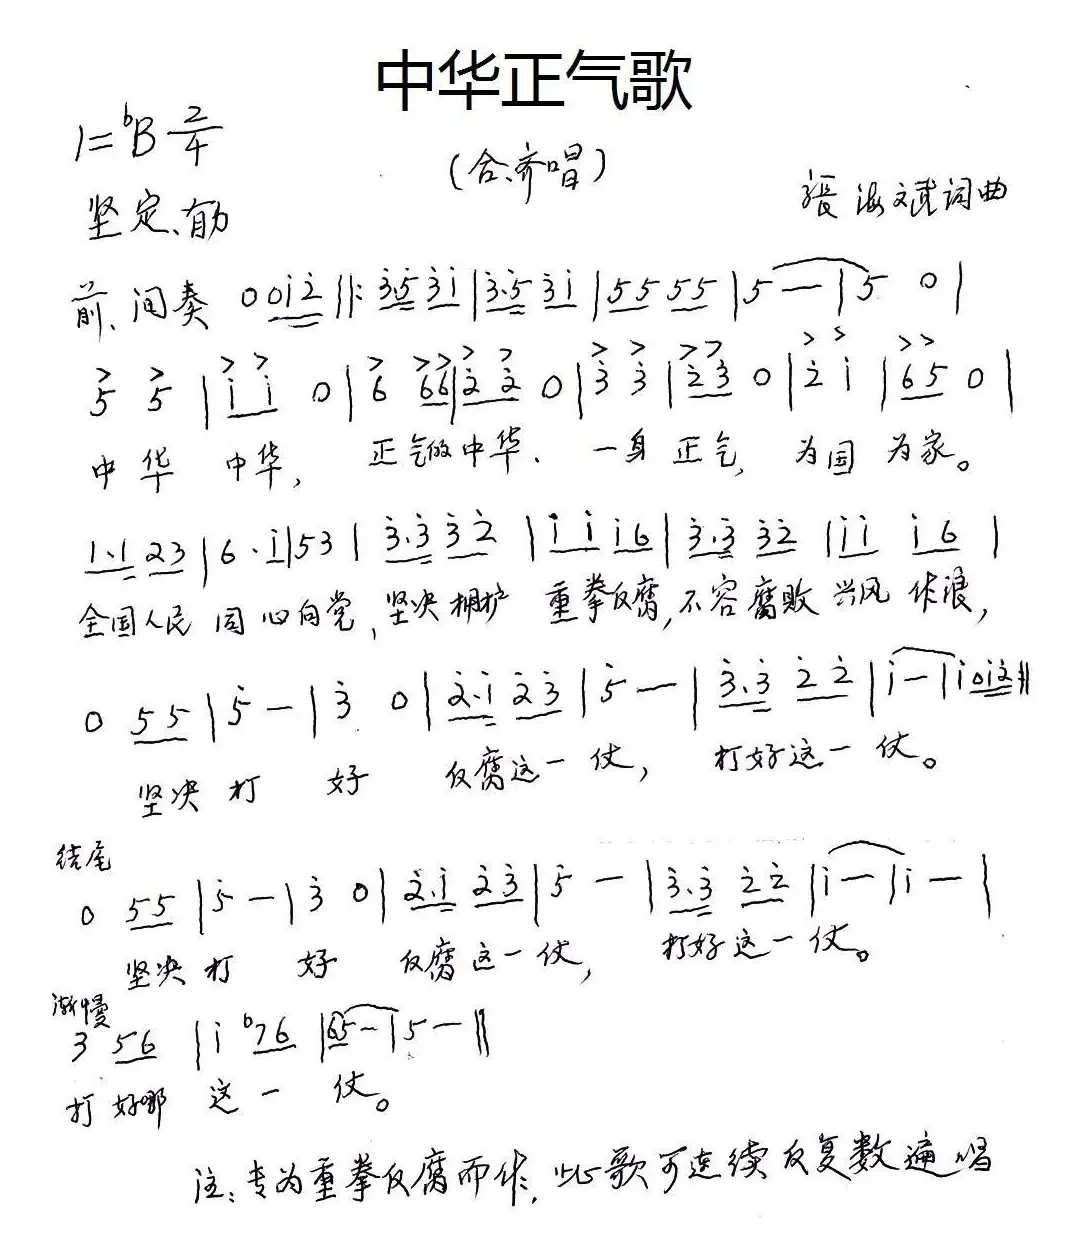 中华正气歌
1=♭B 2/4
(合、齐唱)
坚定、有力
張海文斌词曲
前、间奏 0 0i̇2̇ ‖: 3̇.5̇ 3̇i̇ | 3̇.5̇ 3̇i̇ | 55 55 | 5 — | 5 0 |
5 5 | i̇ i̇ 0 | 6 66 | 2̇ 2̇ 0 | 3̇ 3̇ | 2̇3̇ 0 | 2̇ i̇ | 65 0 |
中华 中华, 正气的中华. 一身正气, 为国 为家。
1.1 23 | 6 . i̇ | 53 | 3̇.3̇ 3̇2̇ | i̇ i̇ i̇6 | 3̇.3̇ 3̇2̇ | i̇i̇ i̇6 |
全国人民 同心向党, 坚决拥护 重拳反腐, 不容腐败 兴风作浪,
0 55 | 5̇ — | 3̇ 0 | 2̇.i̇ 2̇3̇ | 5̇ — | 3̇.3̇ 2̇2̇ | i̇ — | i̇ 0i̇2̇ ‖
坚决打 好 反腐这一仗, 打好这一仗。
结尾
0 55 | 5̇ — | 3̇ 0 | 2̇.i̇ 2̇3̇ | 5̇ — | 3̇.3̇ 2̇2̇ | i̇ — | i̇ — |
坚决打 好 反腐这一仗, 打好这一仗。
渐慢
3 56 | i̇ ♭76 | 65 — | 5 — ‖
打 好哪 这一 仗。
注:专为重拳反腐而作,此歌可连续反复数遍唱